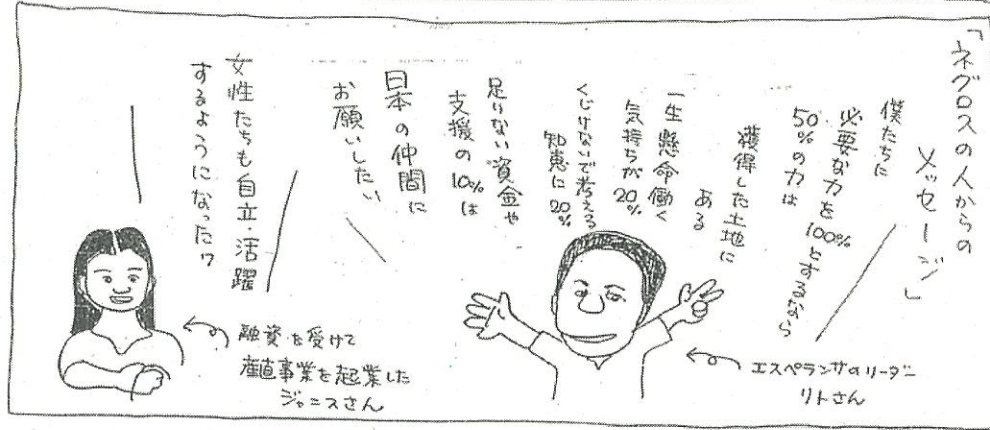 「ネグロスの人からの
メッセージ」
僕たちに
必要な力を100%とするなら
50%の力は
獲得した土地に
ある
一生懸命働く
気持ちが20%
くじけないで考える
知恵に20%
足りない資金や
支援の10%は
日本の仲間に
お願いしたい
エスペランサのリーダー
リトさん
女性たちも自立・活躍
するようになったワ
融資を受けて
産直事業を起業した
ジャニスさん